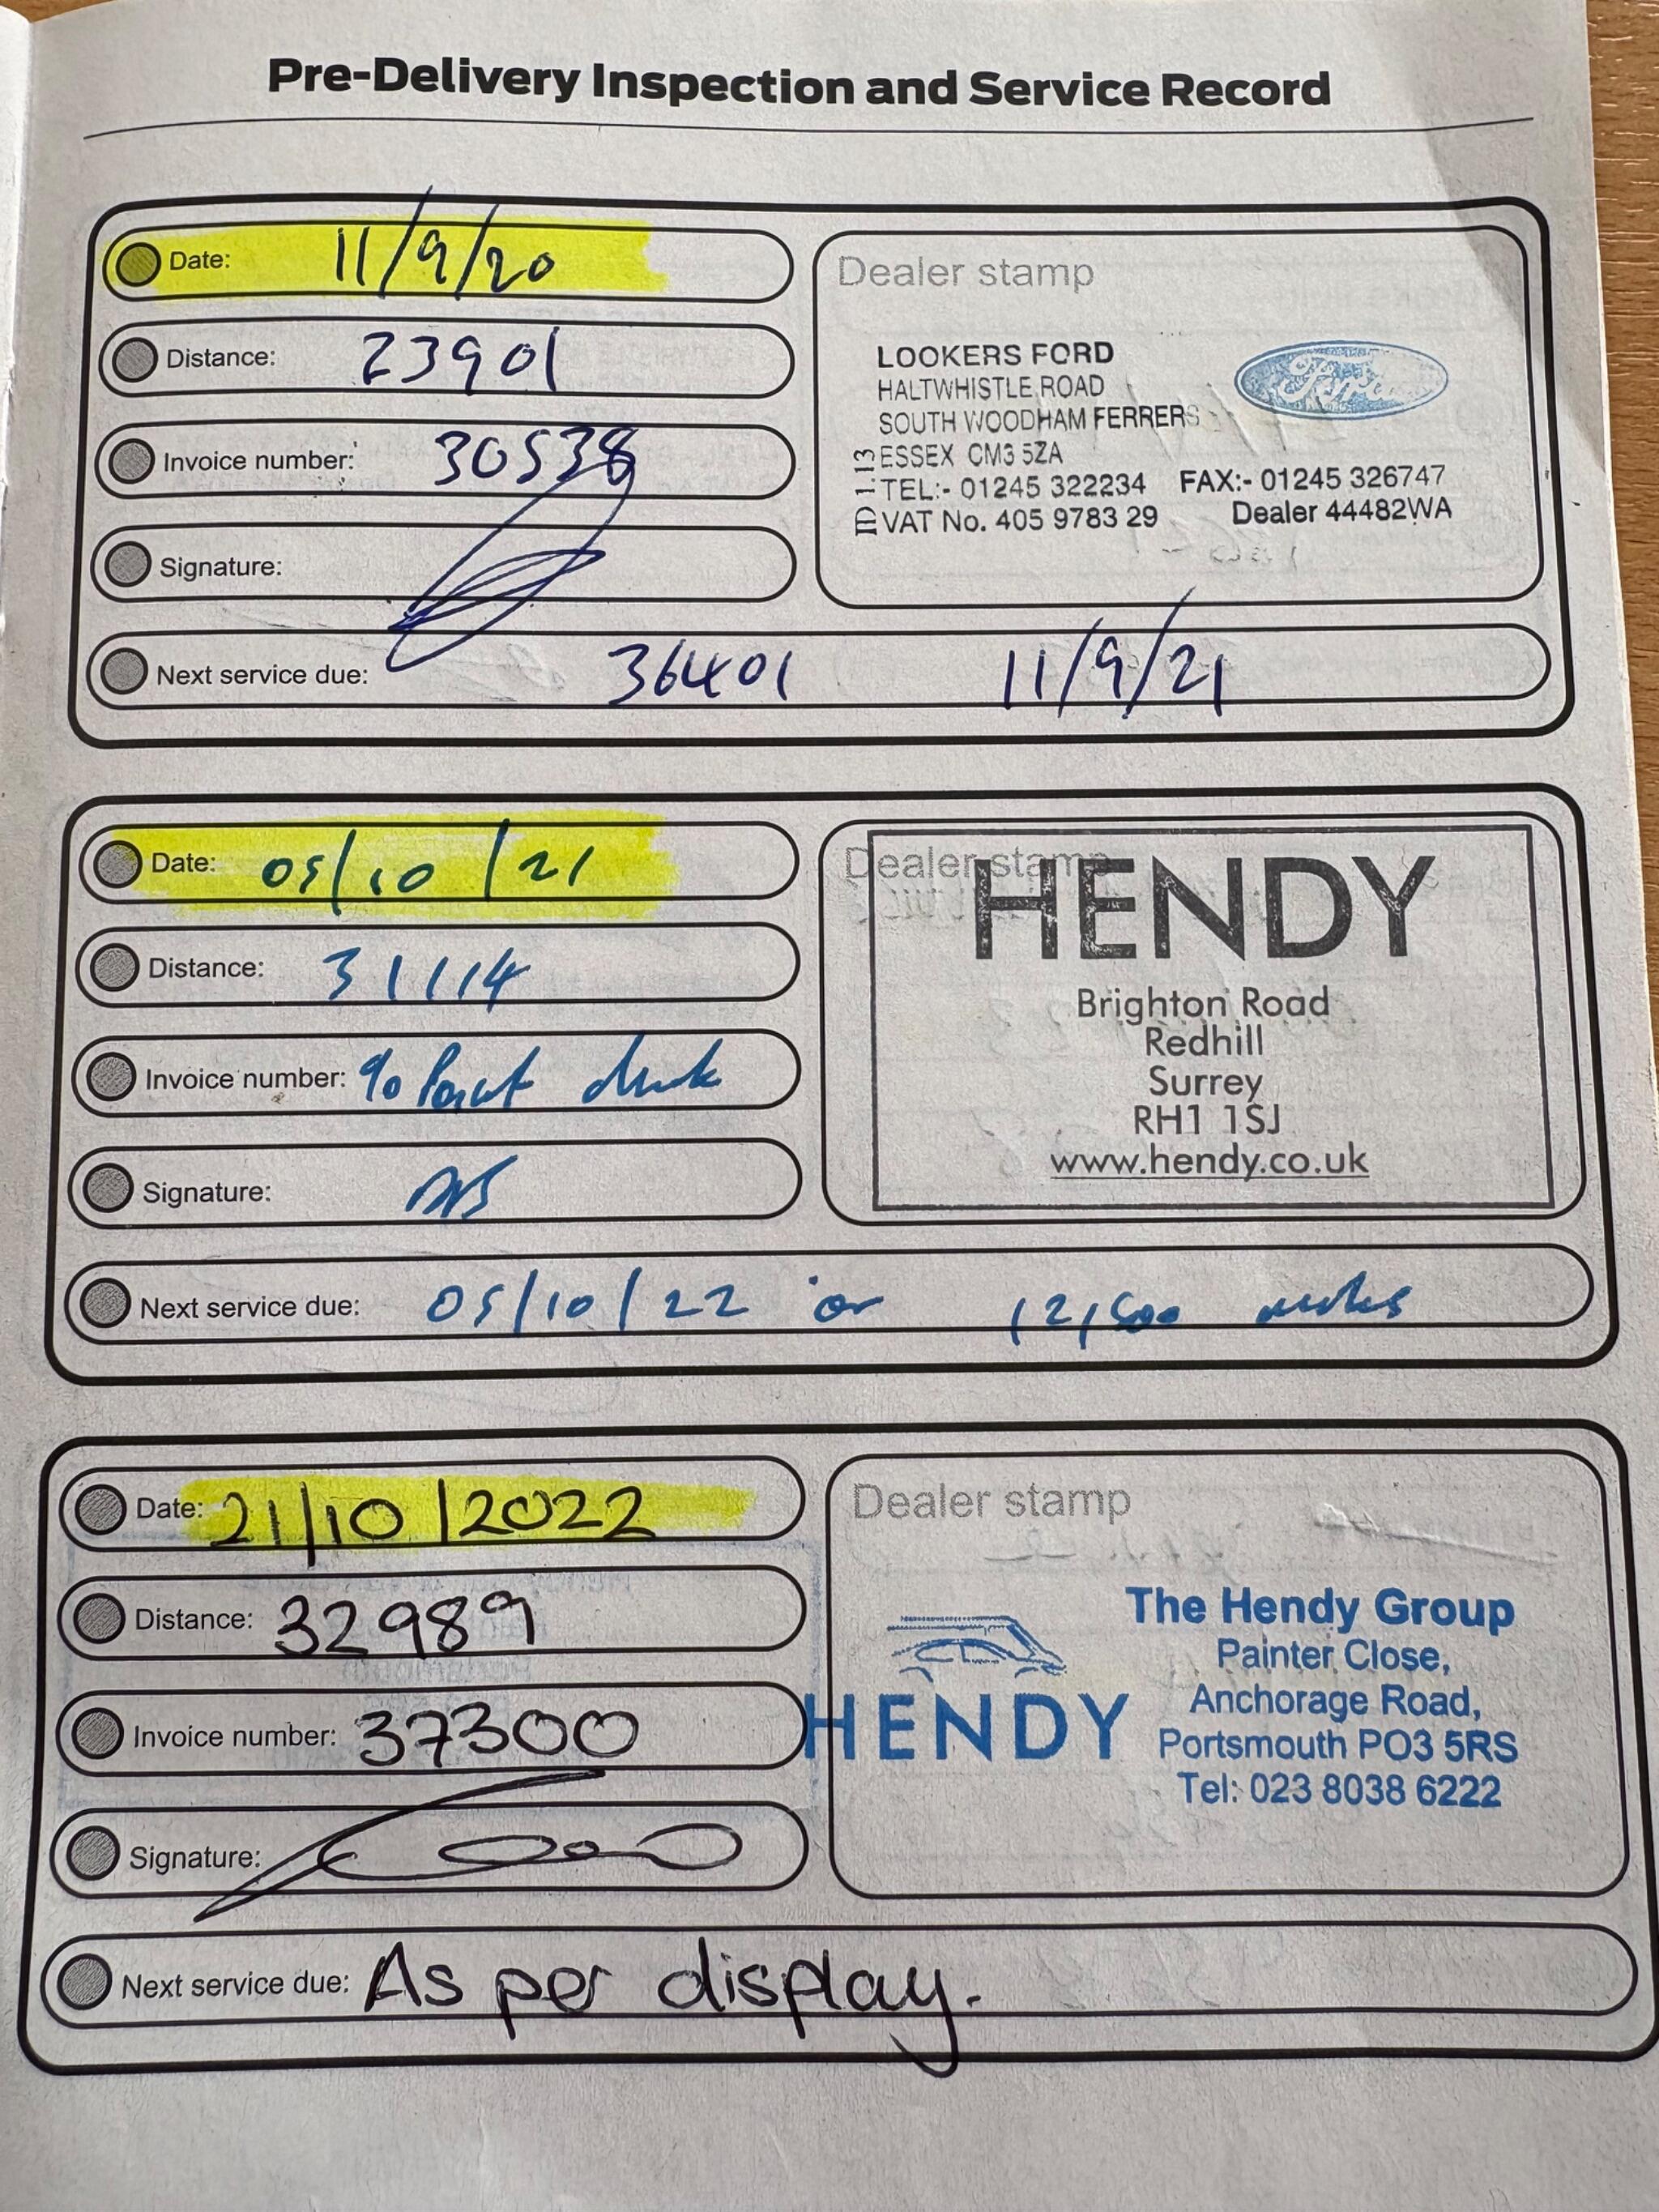 Pre-Delivery Inspection and Service Record
Date: 11/9/20
Distance: 23901
Invoice number: 30538
Signature:
Dealer stamp
LOOKERS FORD
HALTWHISTLE ROAD
SOUTH WOODHAM FERRERS
ESSEX CM3 5ZA
TEL:- 01245 322234 FAX:- 01245 326747
VAT No. 405 9783 29 Dealer 44482WA
ID 1.13
Ford
Next service due: 36401 11/9/21
Date: 05/10/21
Distance: 31114
Invoice number:
Signature:
Dealer stamp
HENDY
Brighton Road
Redhill
Surrey
RH1 1SJ
www.hendy.co.uk
Next service due: 05/10/22 or 12,500 miles
Date: 21/10/2022
Distance: 32989
Invoice number: 37300
Signature:
Dealer stamp
HENDY
The Hendy Group
Painter Close,
Anchorage Road,
Portsmouth PO3 5RS
Tel: 023 8038 6222
Next service due: As per display.